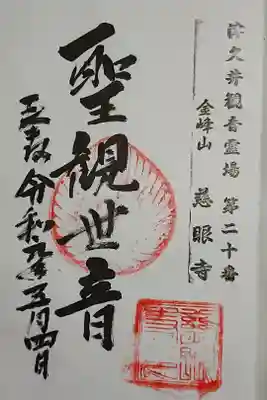 津久井観音霊場 第二十番
金峰山 慈眼寺
聖観世音
令和五年五月四日